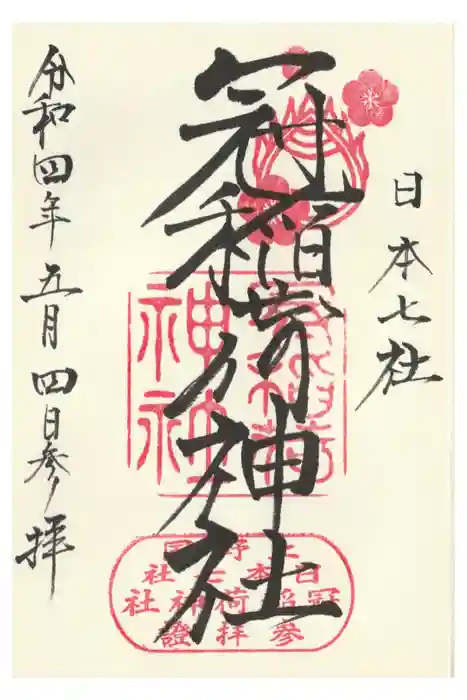 日本七社
冠稲荷神社
令和四年五月四日参拝
神社
上野国
日本七社
冠稲荷神社
參拝證